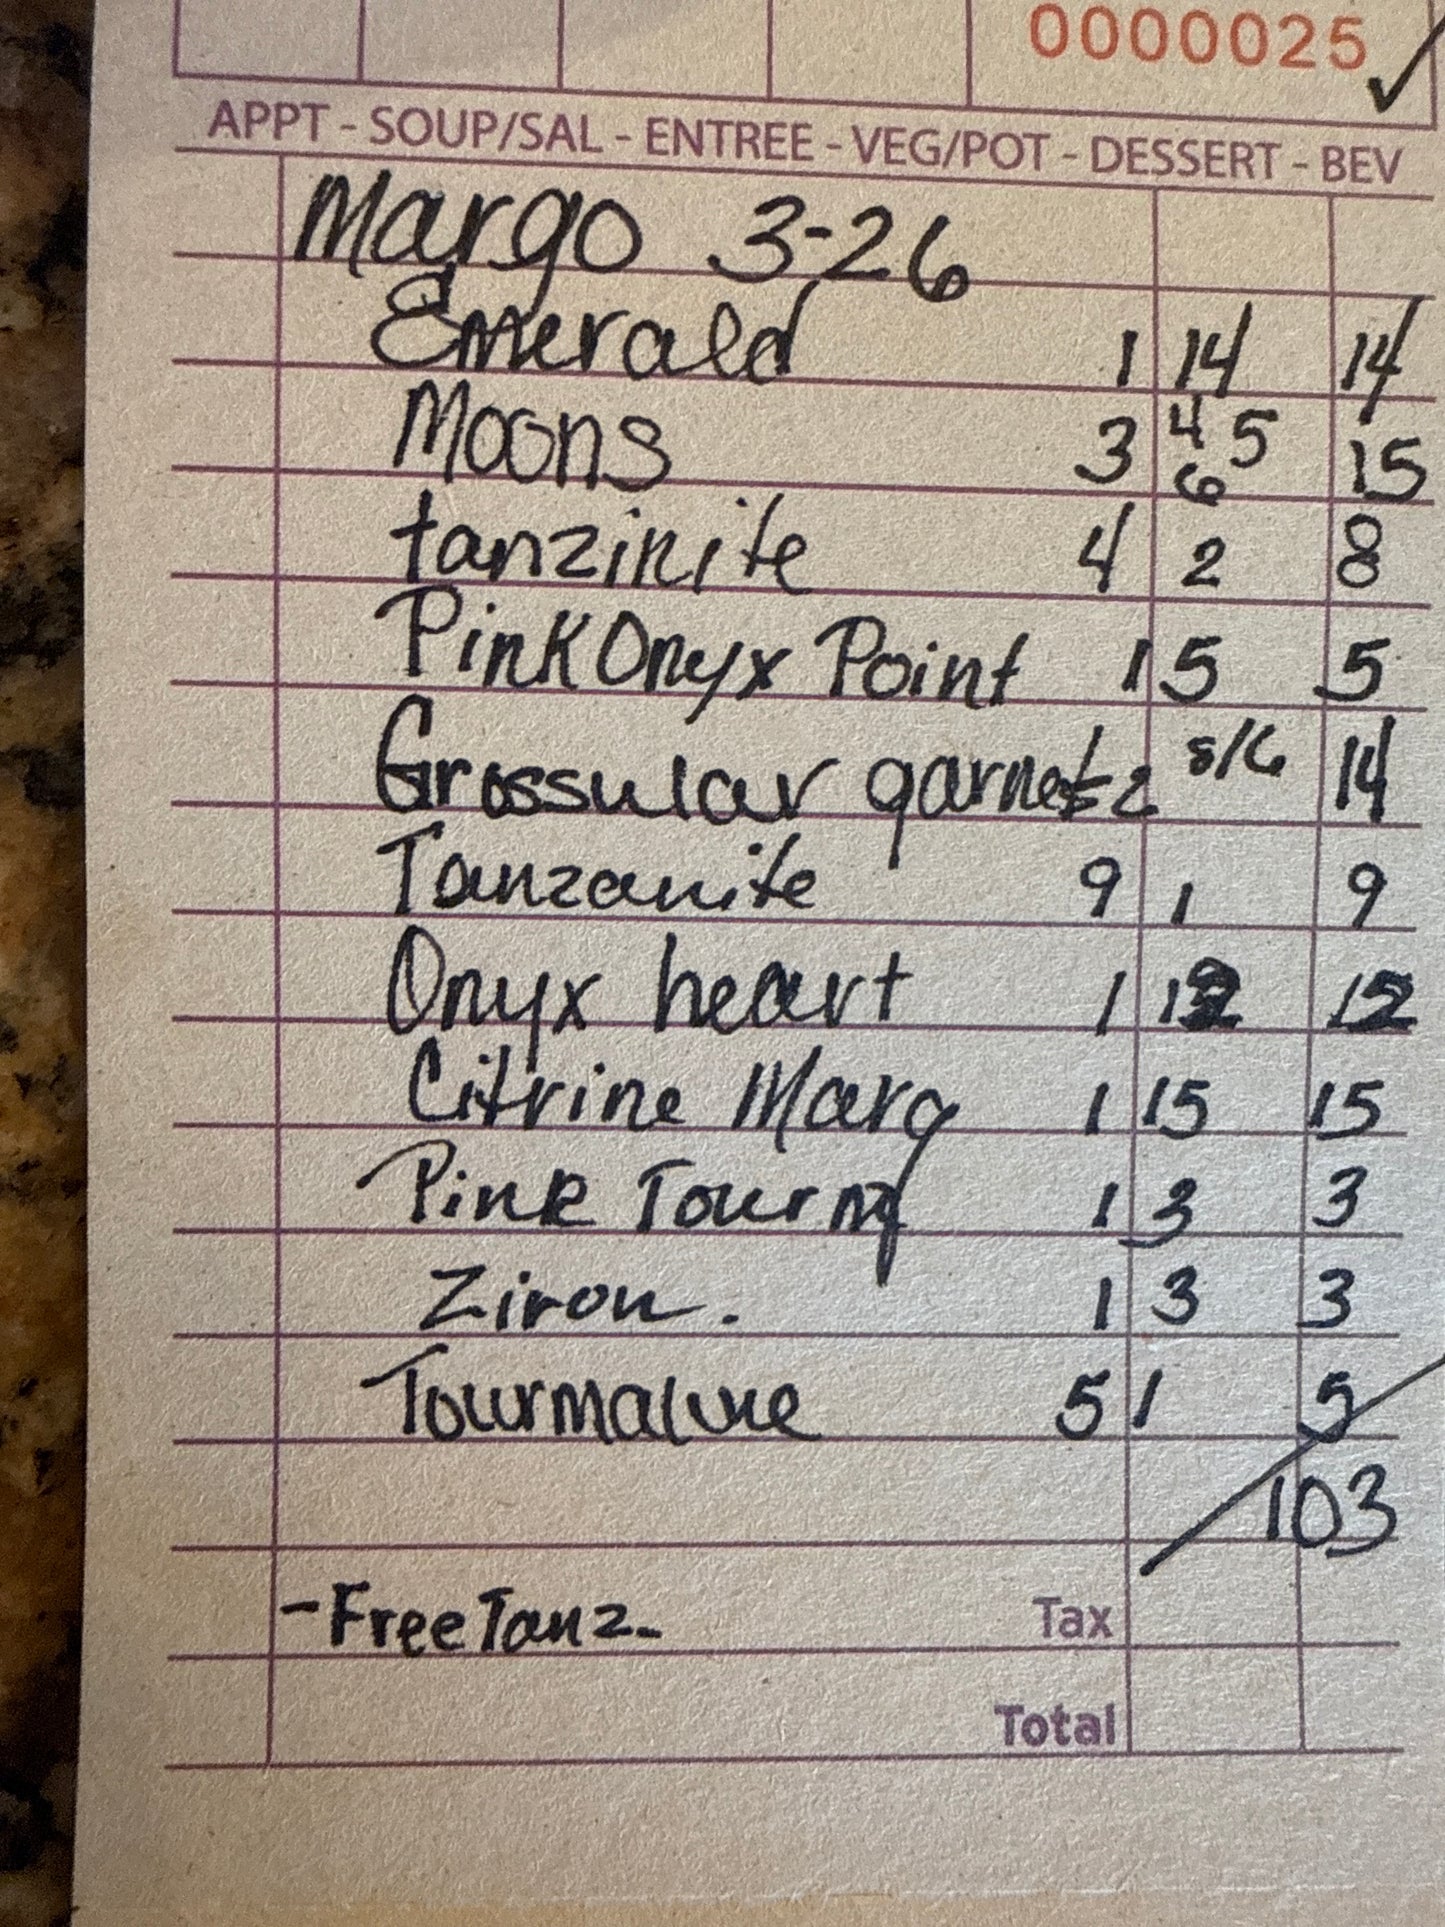 0000025 ✓
APPT - SOUP/SAL - ENTREE - VEG/POT - DESSERT - BEV
Margo 3-26
Emerald 1 14 14
Moons 3 4 5 6 15
tanzinite 4 2 8
Pink Onyx Point 1 5 5
Grossular garnet 2 8/6 14
Tanzanite 9 1 9
Onyx heart 1 12 12
Citrine Marq 1 15 15
Pink Tourm 1 3 3
Ziron. 1 3 3
Tourmaline 5 1 5
103
- Free Tanz- Tax
Total